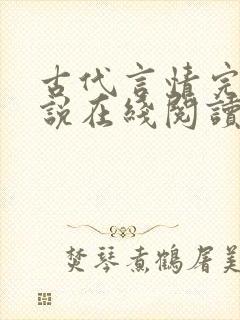 古代言情完
說在綫閱讀
焚琴煮鶴屠美